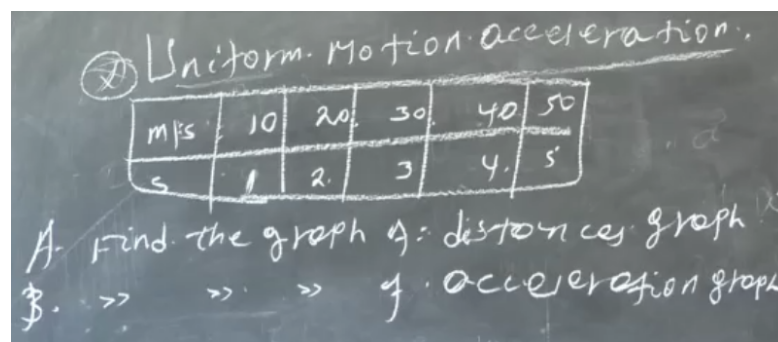 Uniform. Motion. acceleration.
m/s 10 20. 30. 40 50
S 1 2. 3 4. 5
A. Find the graph of: distances graph
B. >> >> >> of. acceleration graph